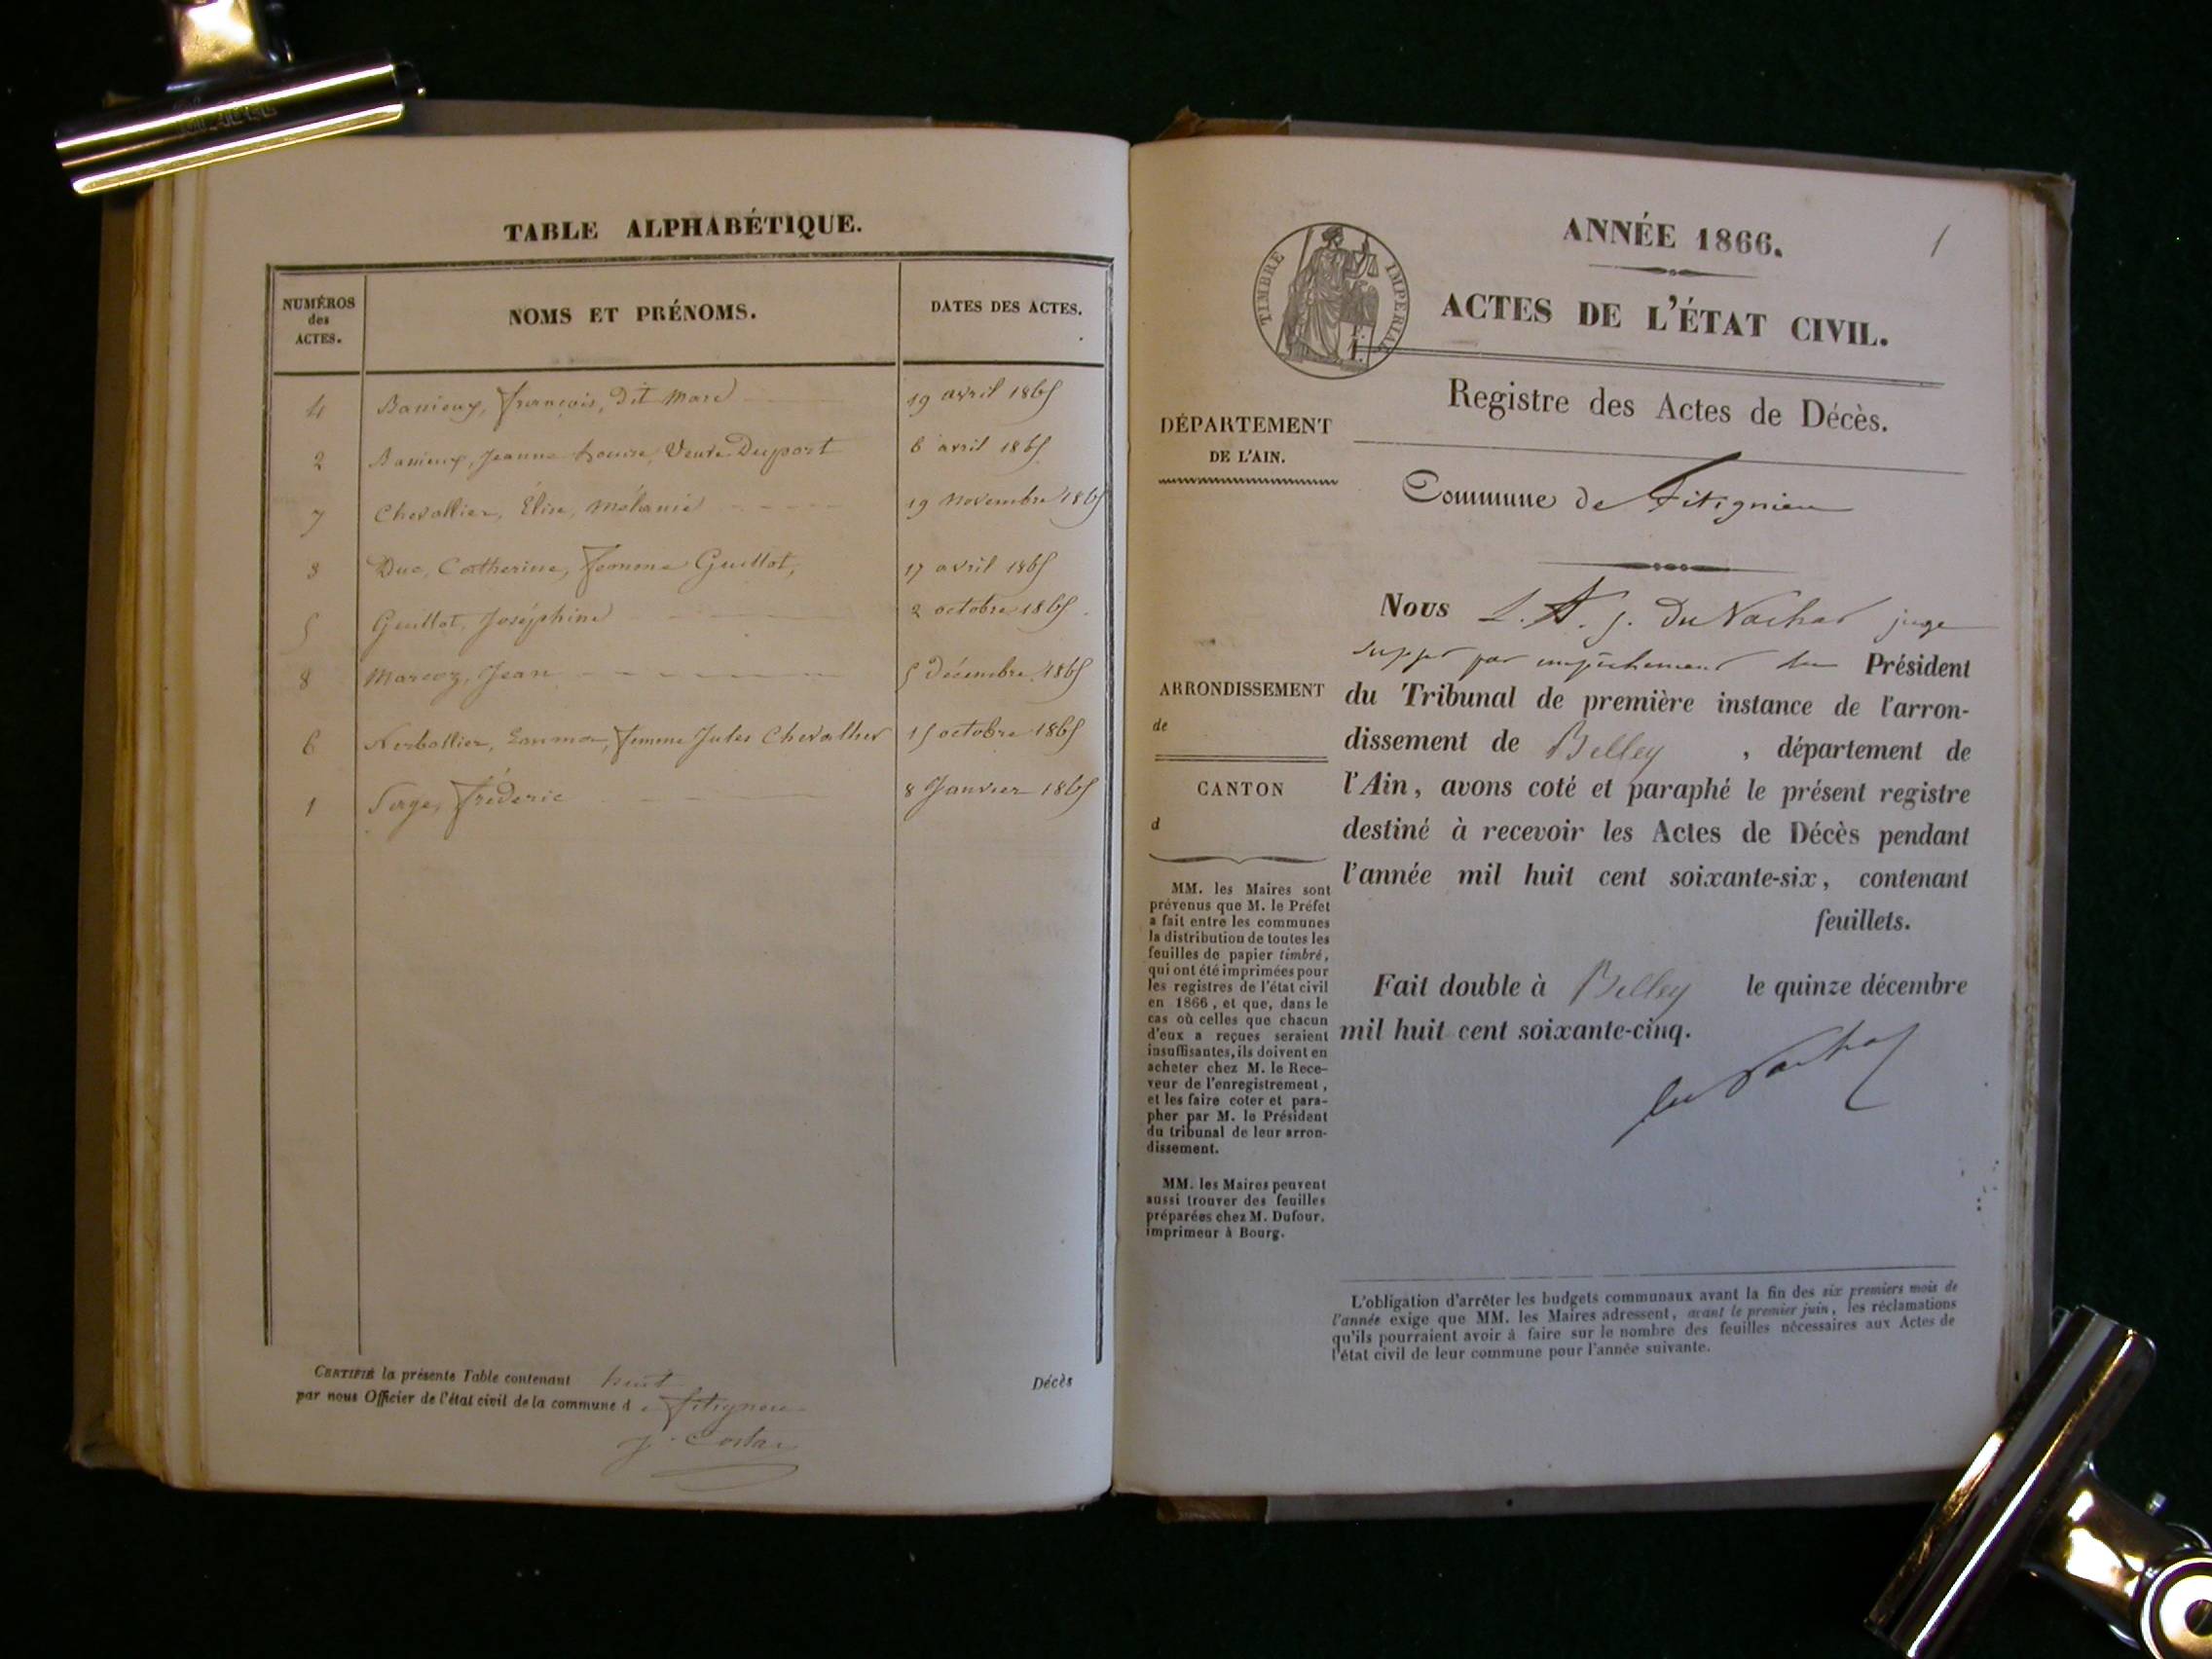 TABLE ALPHABÉTIQUE.
NUMÉROS
des
ACTES.
NOMS ET PRÉNOMS.
DATES DES ACTES.
4 François, dit Marc 19 avril 1865
2 Jeanne Louise, Veuve Duport 6 avril 1865
7 Chevallier, Élise, Mélanie 19 Novembre 1865
3 Duc, Catherine, femme Guillot, 17 avril 1865
5 Guillot, Joséphine 2 octobre 1865
8 Jean 5 Décembre 1865
6 femme Jules Chevallier 15 octobre 1865
1 Frédéric 8 Janvier 1865
CERTIFIÉ la présente Table contenant huit
par nous Officier de l'état civil de la commune d e Fitignieu
Décès
1
ANNÉE 1866.
TIMBRE IMPÉRIAL
ACTES DE L'ÉTAT CIVIL.
Registre des Actes de Décès.
DÉPARTEMENT
DE L'AIN.
Commune de Fitignieu
Nous juge
par empêchement du Président
du Tribunal de première instance de l'arron-
dissement de Belley , département de
l'Ain, avons coté et paraphé le présent registre
destiné à recevoir les Actes de Décès pendant
l'année mil huit cent soixante-six, contenant
feuillets.
Fait double à Belley le quinze décembre
mil huit cent soixante-cinq.
ARRONDISSEMENT
de
CANTON
d
MM. les Maires sont
prévenus que M. le Préfet
a fait entre les communes
la distribution de toutes les
feuilles de papier timbré,
qui ont été imprimées pour
les registres de l'état civil
en 1866, et que, dans le
cas où celles que chacun
d'eux a reçues seraient
insuffisantes, ils doivent en
acheter chez M. le Rece-
veur de l'enregistrement,
et les faire coter et para-
pher par M. le Président
du tribunal de leur arron-
dissement.
MM. les Maires peuvent
aussi trouver des feuilles
préparées chez M. Dufour,
imprimeur à Bourg.
L'obligation d'arrêter les budgets communaux avant la fin des six premiers mois de
l'année exige que MM. les Maires adressent, avant le premier juin, les réclamations
qu'ils pourraient avoir à faire sur le nombre des feuilles nécessaires aux Actes de
l'état civil de leur commune pour l'année suivante.